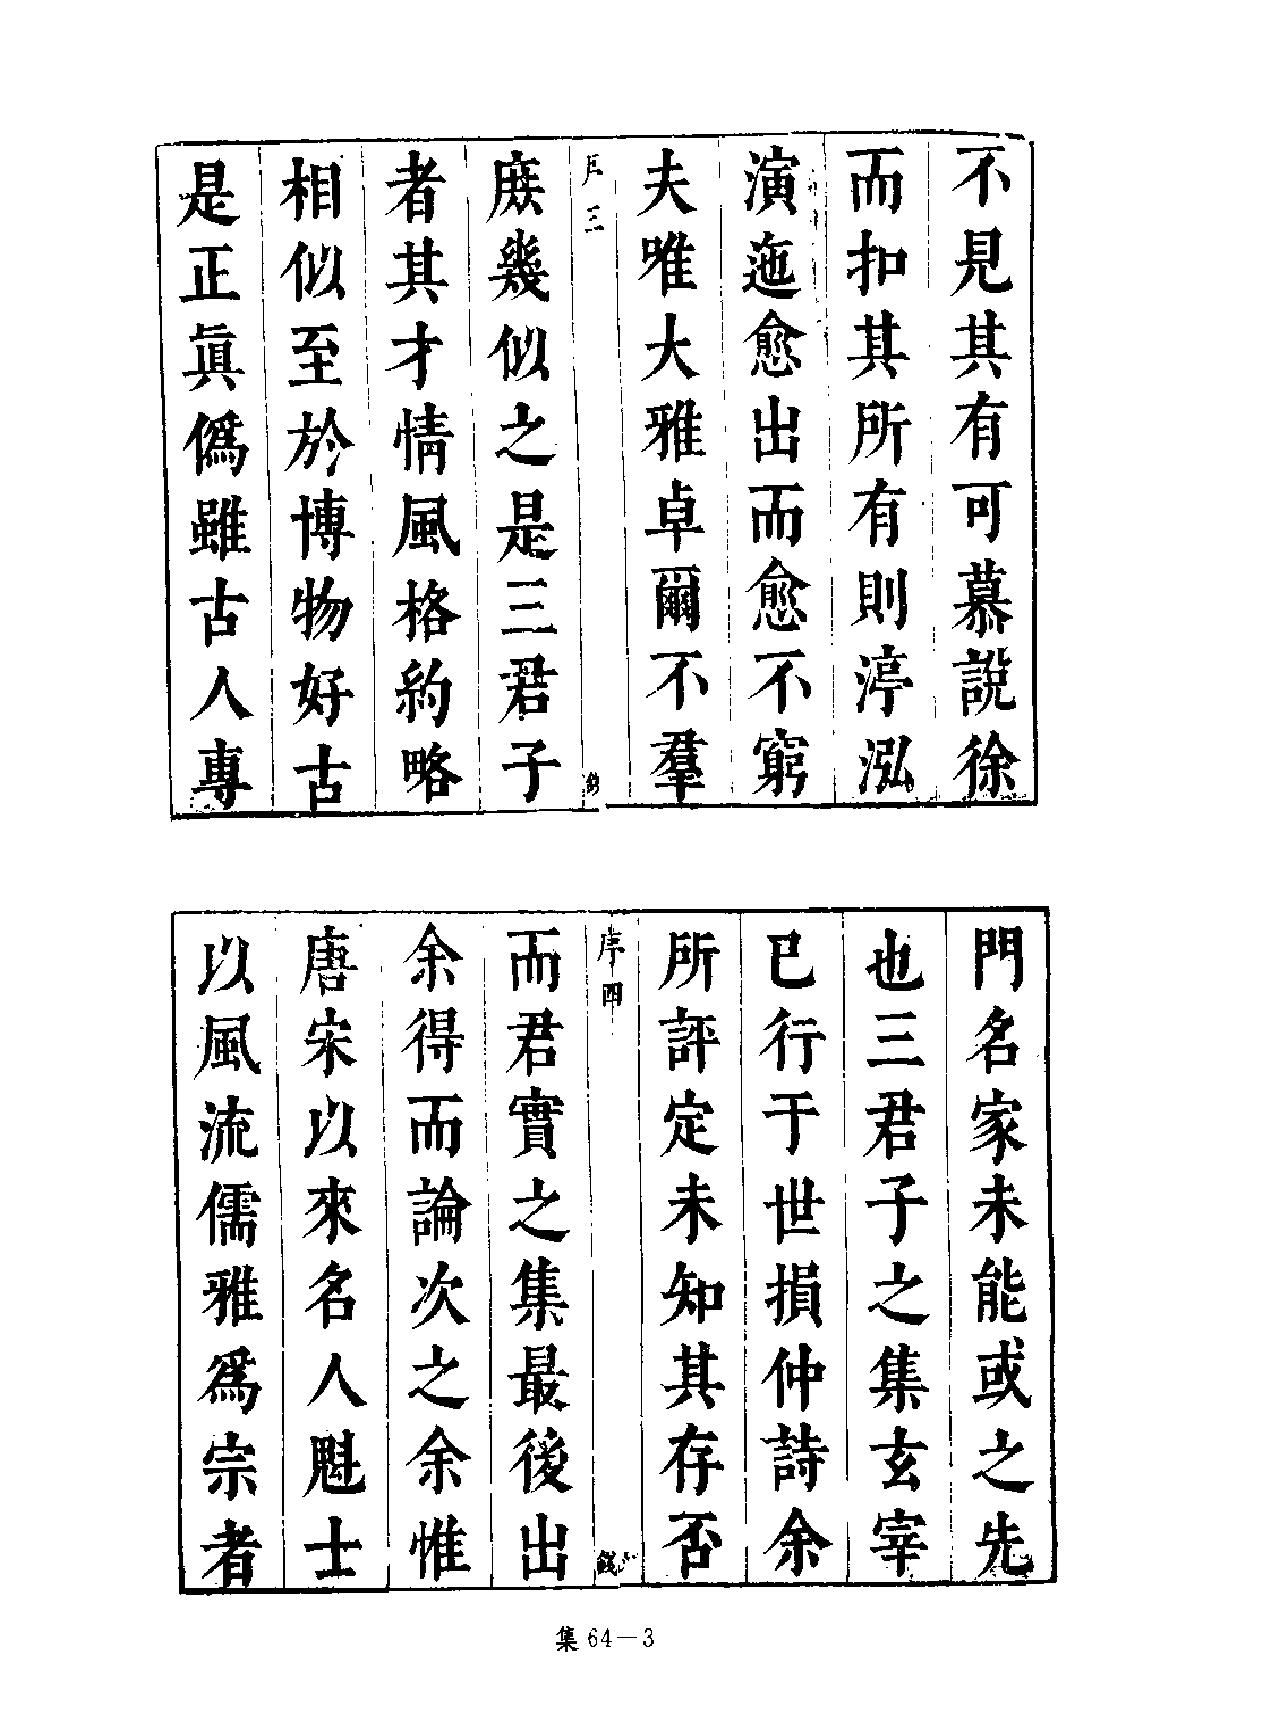 不見其有可慕說徐
而扣其所有則渟泓
演迤愈出而愈不窮
夫唯大雅卓爾不羣
序三
庻幾似之是三君子
者其才情風格約略
相似至於博物好古
是正眞僞雖古人專
門名家未能或之先
也三君子之集玄宰
已行于世損仲詩余
所評定未知其存否
序四
而君實之集最後出
余得而論次之余惟
唐宋以來名人魁士
以風流儒雅爲宗者
集 64－3